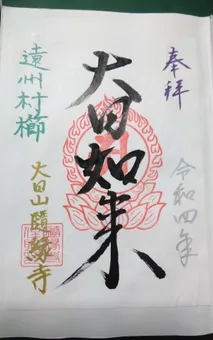 奉拝
令和四年
大日如来
遠州村櫛
大日山隨縁寺